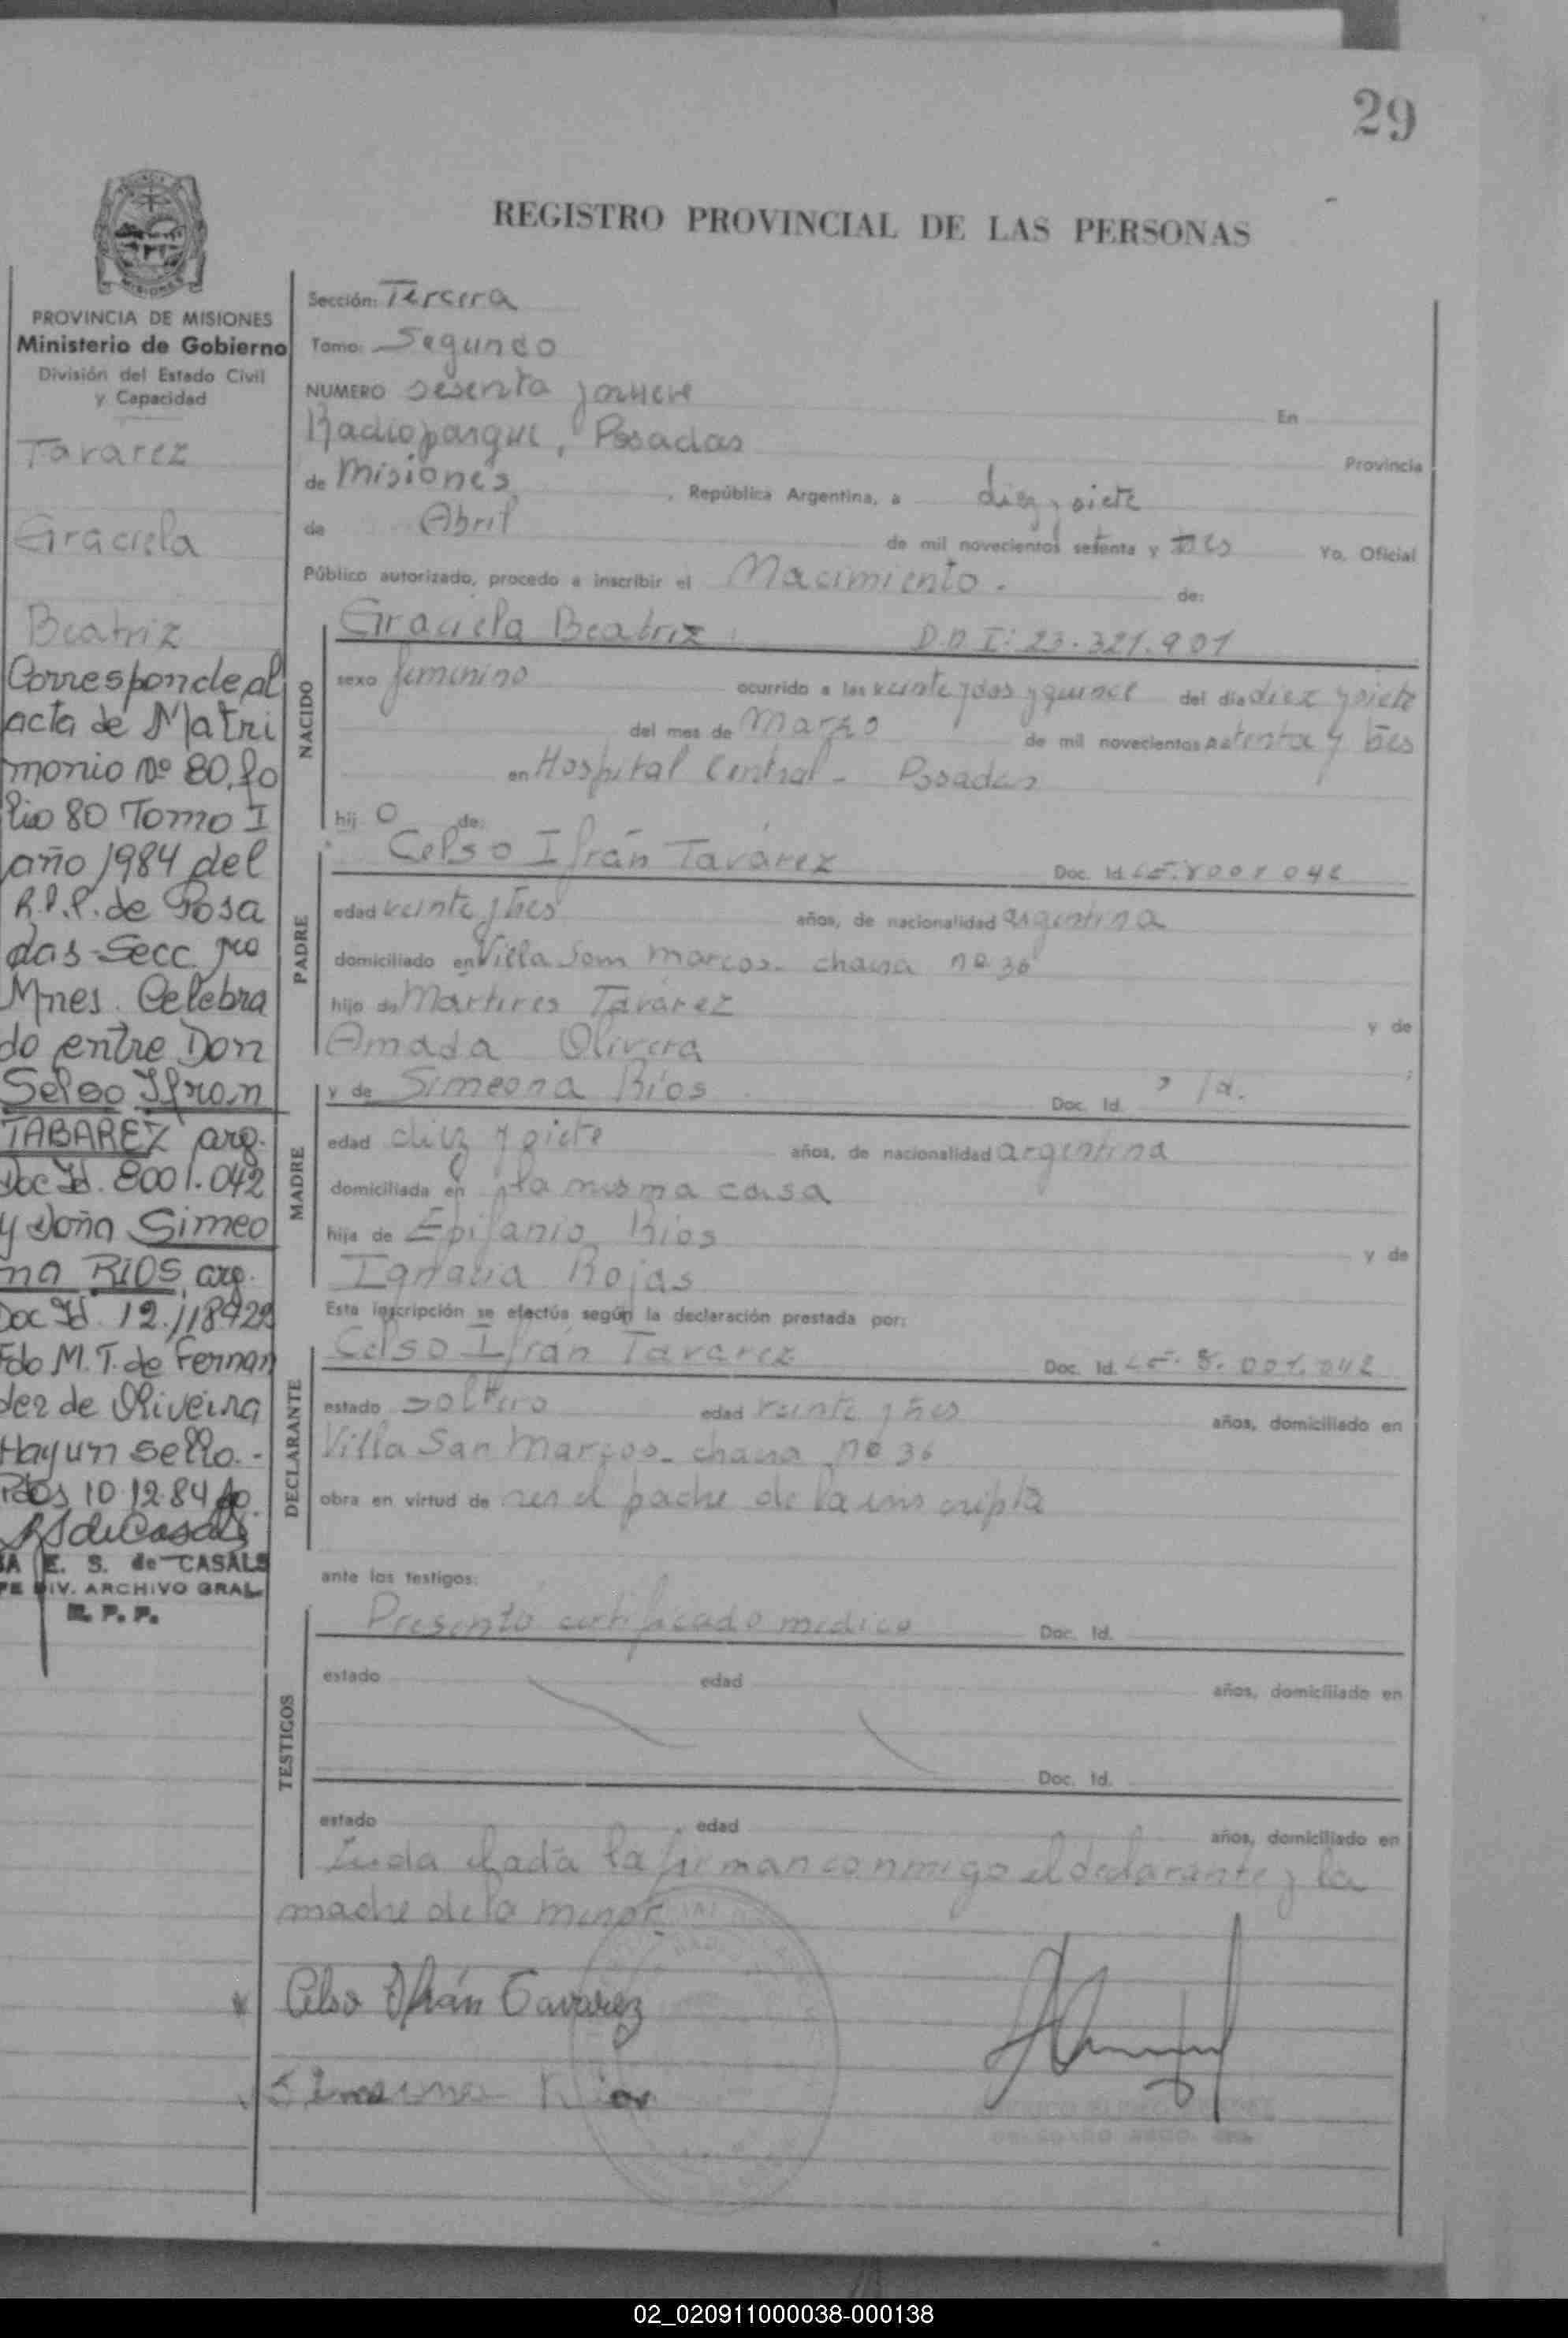 29
REGISTRO PROVINCIAL DE LAS PERSONAS
PROVINCIA DE MISIONES
Ministerio de Gobierno
División del Estado Civil
y Capacidad
Tavarez
Graciela
Beatriz
Corresponde al
acta de Matri
monio Nº 80, fo
lio 80 Tomo I
año 1984 del
R.P.P. de Posa
das-Secc
Mnes. Celebra
do entre Don
Selso Ifran
TABAREZ arg.
Doc Id. 8001.042
y Doña Simeo
na RIOS, arg.
Doc Id. 12.118928
Fdo M. T. de Fernan
dez de Oliveira
Hay un sello.-
Pdas 10.12.84
E. S. de CASALS
DIV. ARCHIVO GRAL.
R. P. P.
Sección: Tercera
Tomo: Segundo
NUMERO sesenta y nueve En
Radioparque, Posadas Provincia
de Misiones, República Argentina, a diez y siete
de Abril de mil novecientos setenta y tres Yo, Oficial
Público autorizado, procedo a inscribir el Nacimiento. de:
NACIDO
Graciela Beatriz D.N.I: 23.321.901
sexo femenino ocurrido a las veinte y dos y quince del dia diez y siete
del mes de Marzo de mil novecientos setenta y tres
en Hospital Central - Posadas
hij o de:
PADRE
Celso Ifrán Tavárez Doc. Id. L.E. 8001042
edad veinte y tres años, de nacionalidad argentina
domiciliado en Villa Som Marcos- chacra nº 36
hijo de Martires Tavárez y de
Amada Olivera
MADRE
y de Simeona Ríos Doc. Id.
edad diez y siete años, de nacionalidad argentina
domiciliada en la misma casa
hija de Epifanio Rios y de
Ignacia Rojas
Esta inscripción se efectúa según la declaración prestada por:
DECLARANTE
Celso Ifrán Tavarez Doc. Id. L.E. 8.001.042
estado soltero edad veinte y tres años, domiciliado en
Villa San Marcos- chacra nº 36
obra en virtud de ser el padre de la inscripta
ante los testigos:
TESTIGOS
Presento certificado medico Doc. Id.
estado edad años, domiciliado en
Doc. Id.
estado edad años, domiciliado en
Leída el acta la firman conmigo el declarante y la
madre de la menor.
Celso Ifrán Tavarez
Simeona Rios
02_020911000038-000138